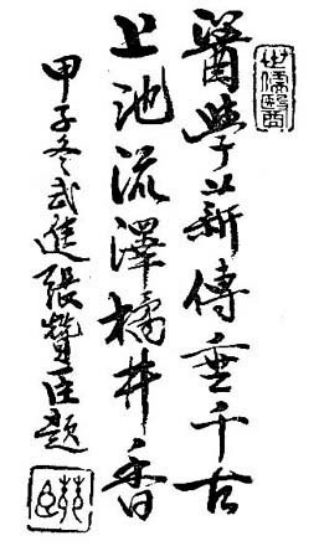 世儒醫
醫學薪傳垂千古
上池流澤橘井香
甲子冬武進張贊臣題